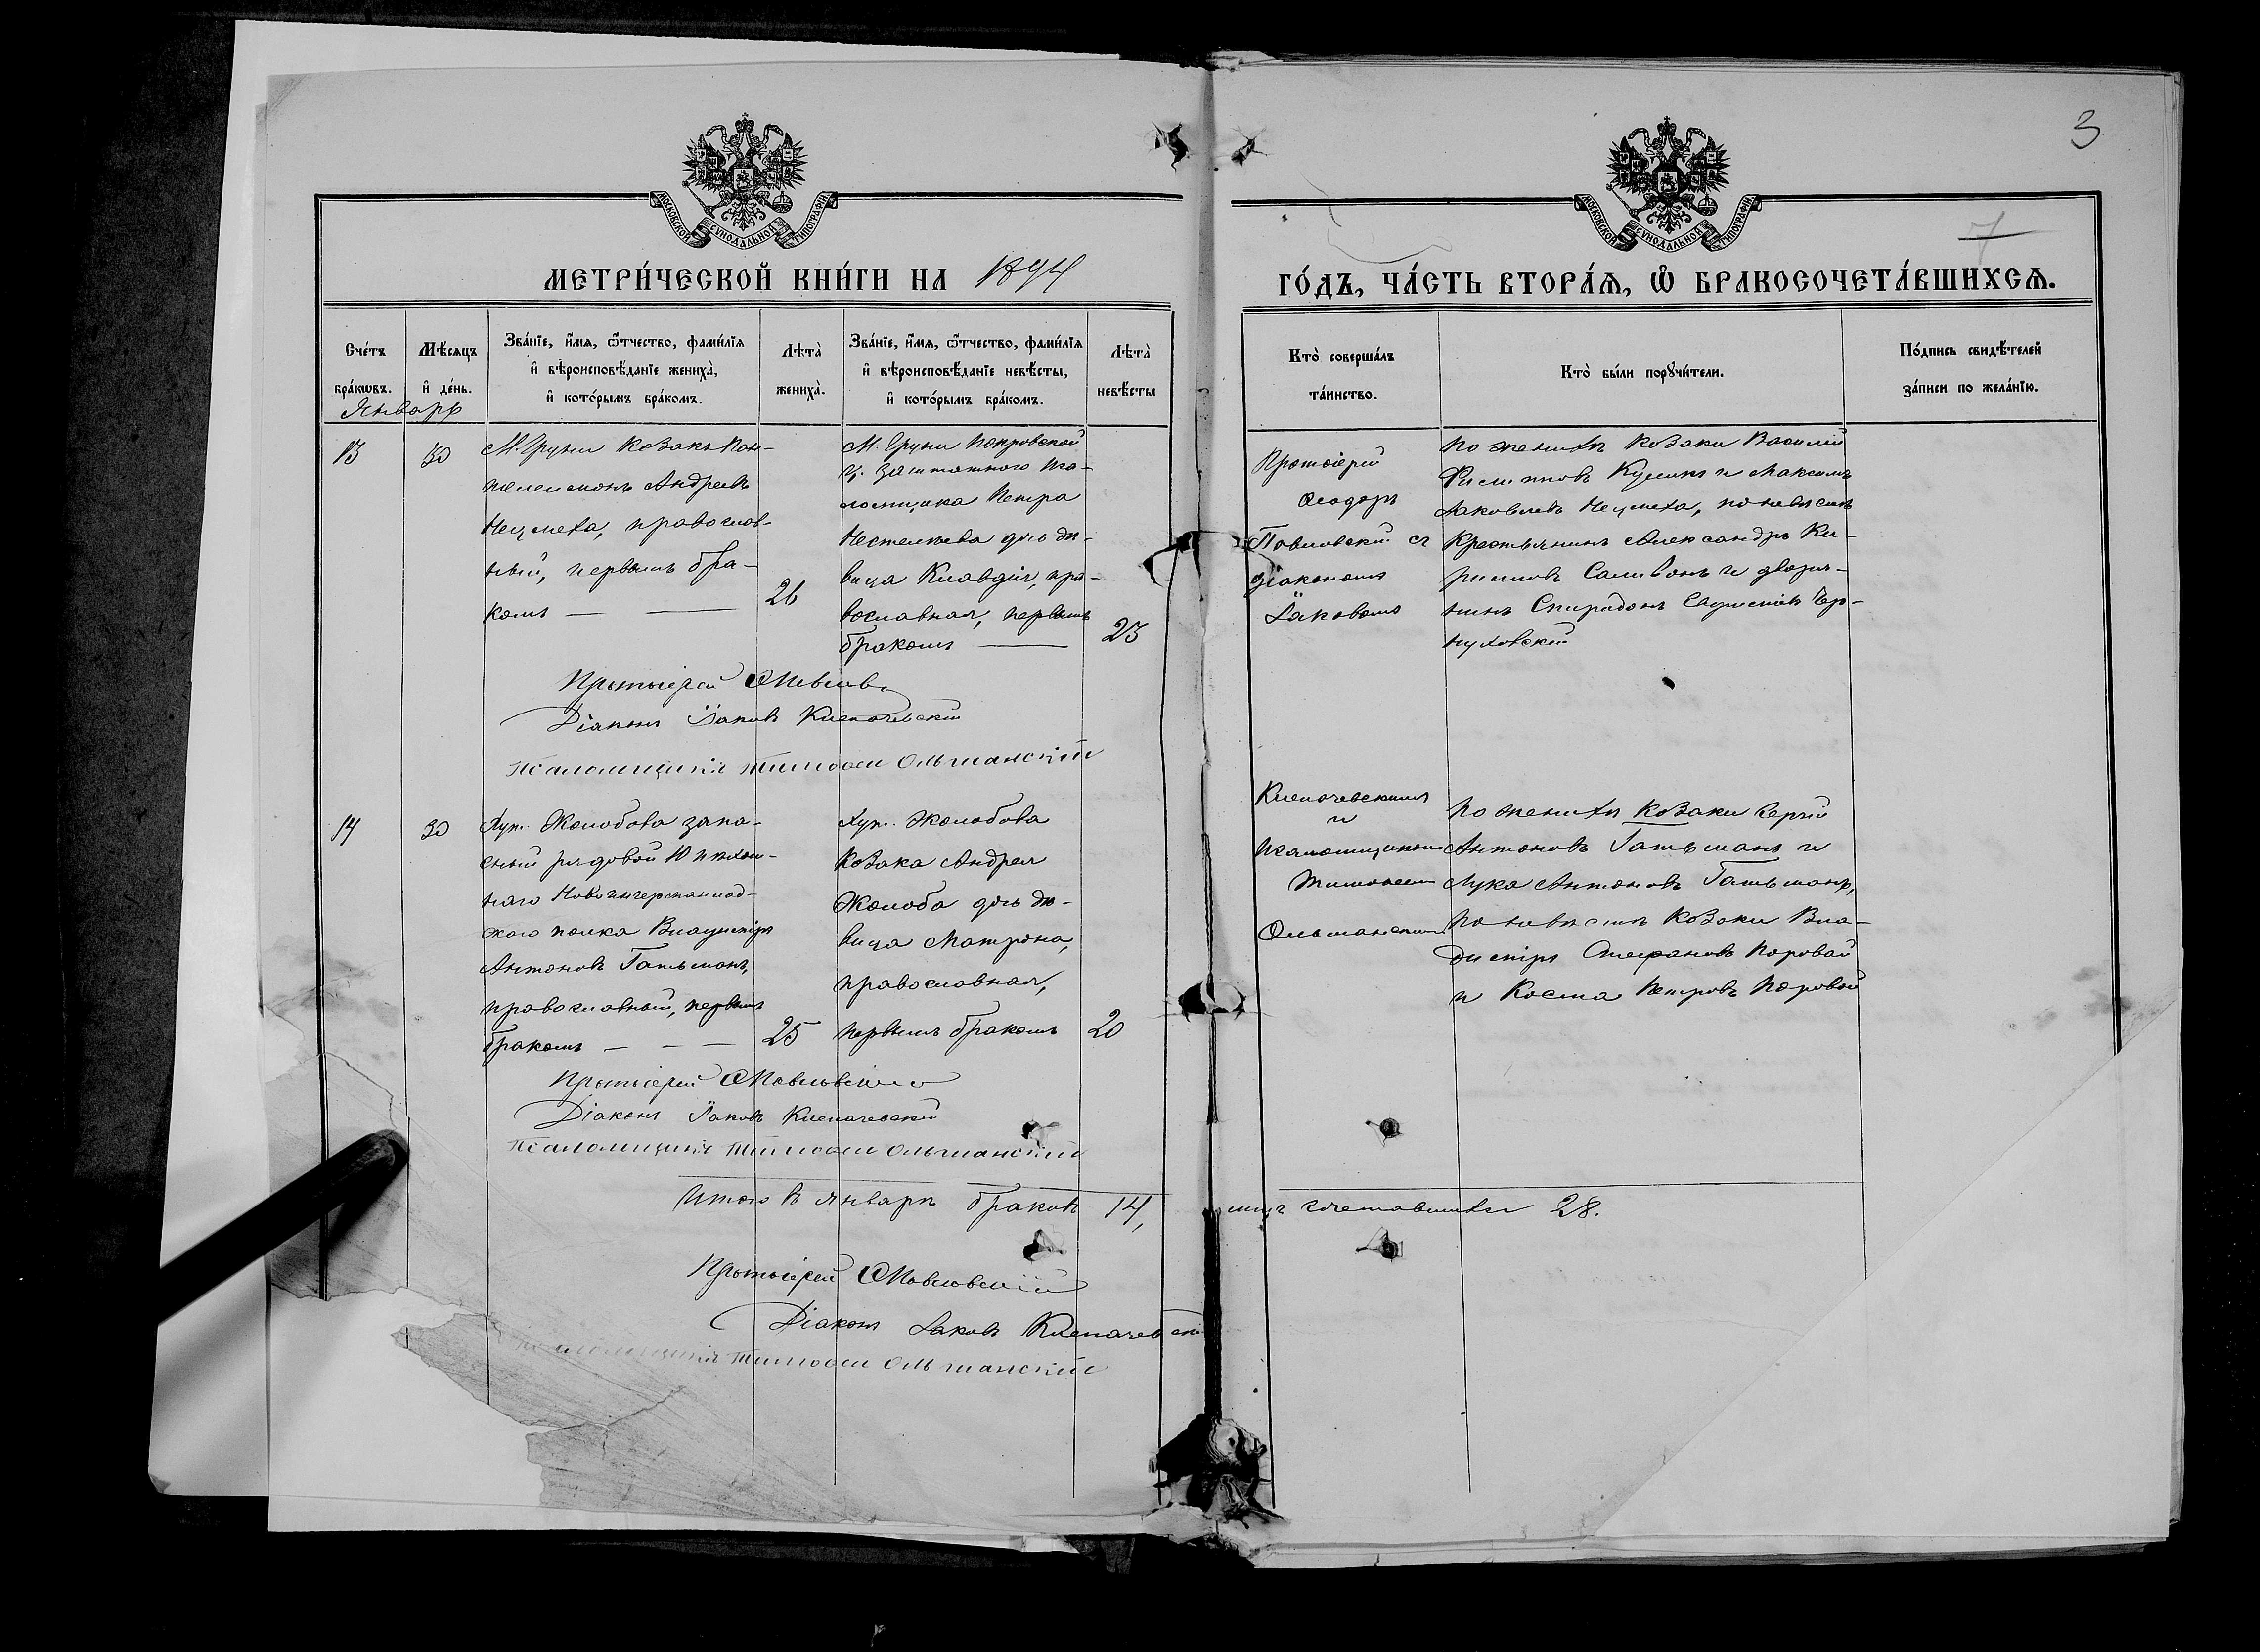 3
7
МОСКОВСКОЙ СѴНОДАЛЬНОЙ ТИПОГРАФІИ
МОСКОВСКОЙ СѴНОДАЛЬНОЙ ТИПОГРАФІИ
МЕТРИ́ЧЕСКОЙ КНИ́ГИ НА 1894
ГО́ДЪ, ЧА́СТЬ ВТОРА́Ѧ, Ѽ БРАКОСОЧЕТА́ВШИХСѦ.
Сче́тъ
бра́кѡвъ.
Мѣ́сяцъ
и҆ де́нь.
Зва́нїе, и҆́мѧ, ѻ҆́тчество, фами́лїѧ
и҆ вѣроисповѣ́данїе жениха̀,
и҆ кото́рымъ бра́комъ.
Лѣта̀
жениха̀.
Зва́нїе, и҆́мѧ, ѻ҆́тчество, фами́лїѧ
и҆ вѣроисповѣ́данїе невѣ́сты,
и҆ кото́рымъ бра́комъ.
Лѣта̀
невѣ́сты
Кто̀ соверша́лъ
та́инство.
Кто̀ бы́ли порꙋчи́тели.
По́дпись свидѣ́телей
за́писи по жела́нїю.
Январь
13
30
М. Груни козакъ Пан-
телеимонъ Андреевъ
Неумеха, православ-
ный, первымъ бра-
комъ
26
М. Груни Покровской
ц. заштатнаго пса-
ломщика Петра
дочь дѣ-
вица Клавдія, пра-
вославная, первымъ
бракомъ
23
Протоіерей
Ѳеодоръ
Павловскій съ
діакономъ
Іаковомъ
По женихѣ козаки Василій
Филипповъ Куликъ и Максимъ
Іаковлевъ Неумеха, по невѣстѣ
Крестьянинъ Александръ Ки-
рилловъ и дворя-
нинъ Спиридонъ Чер-
нуховскій
Протоіерей Ѳ Павловс
Діаконъ Іаковъ Клепачевскій
Псаломщикъ Тимоѳей Ольшанскій
14
30
Хут. Жолобова запа-
сный рядовой 10 пѣхот-
наго Новоингерманланд-
скаго полка Владиміръ
Антоновъ Гатьманъ,
православный, первымъ
бракомъ
25
Хут. Жолобова
козака Андрея
Жолоба дочь дѣ-
вица Матрона,
православная,
первымъ бракомъ
20
Клепачевскимъ
и
Псаломщикомъ
Тимоѳеемъ
Ольшанскимъ
По женихѣ козаки Сергій
Антоновъ Гатьманъ и
Лука Антоновъ Гатьманъ,
по невѣстѣ козаки Вла-
диміръ Стефановъ Яровой
и Косма Петровъ Яровой
Протоіерей Ѳ Павловскій
Діаконъ Іаковъ Клепачевскій
Псаломщикъ Тимоѳей Ольшанскій
Итого въ январѣ браковъ 14,
лицъ сочетавшихся 28.
Протоіерей Ѳ Павловскій
Діаконъ Іаковъ Клепачевскій
Псаломщикъ Тимоѳей Ольшанскій